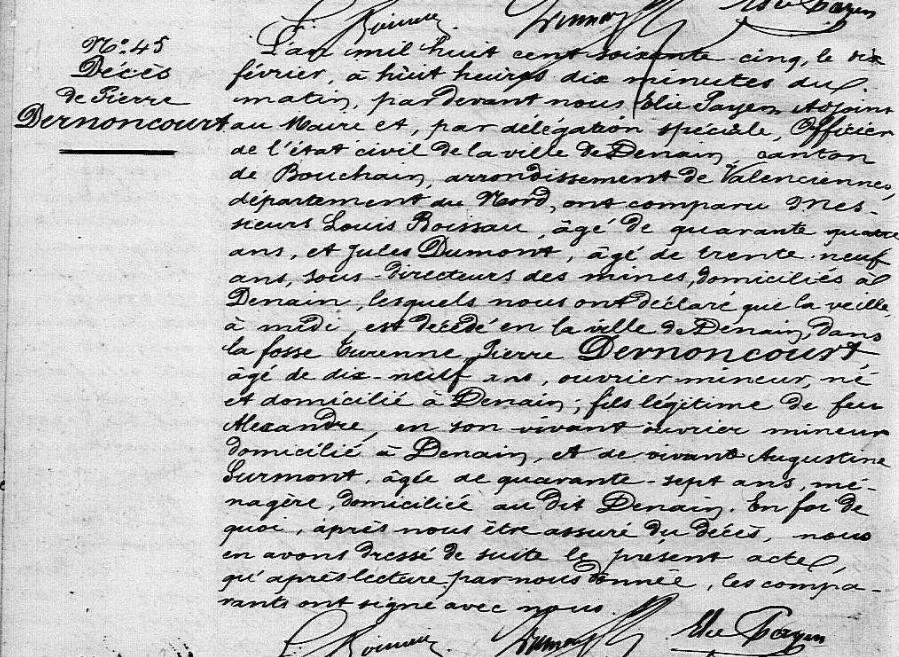 Elie Payen
N.º 45
Décès
de Pierre
Dernoncourt
L'an mil huit cent soixante cinq, le six
février, à huit heures dix minutes du
matin, pardevant nous Elie Payen Adjoint
au Maire et, par délégation spéciale, Officier
de l'état civil de la ville de Denain, canton
de Bouchain, arrondissement de Valenciennes,
département du Nord, ont comparu Mes-
sieurs Louis Boissau, âgé de quarante quatre
ans, et Jules Dumont, âgé de trente-neuf
ans, sous-directeurs des mines, domiciliés à
Denain, lesquels nous ont déclaré que la veille,
à midi, est décédé en la ville de Denain, dans
la fosse Turenne, Pierre Dernoncourt
âgé de dix-neuf ans, ouvrier mineur, né
et domicilié à Denain; fils légitime de feu
Alexandre, en son vivant ouvrier mineur
domicilié à Denain, et de vivant Augustine
Surmont, âgée de quarante-sept ans, mé-
nagère, domiciliée au dit Denain. En foi de
quoi, après nous être assuré du décès, nous
en avons dressé de suite le présent acte,
qu'après lecture par nous donnée, les compa-
rants ont signé avec nous.
Elie Payen